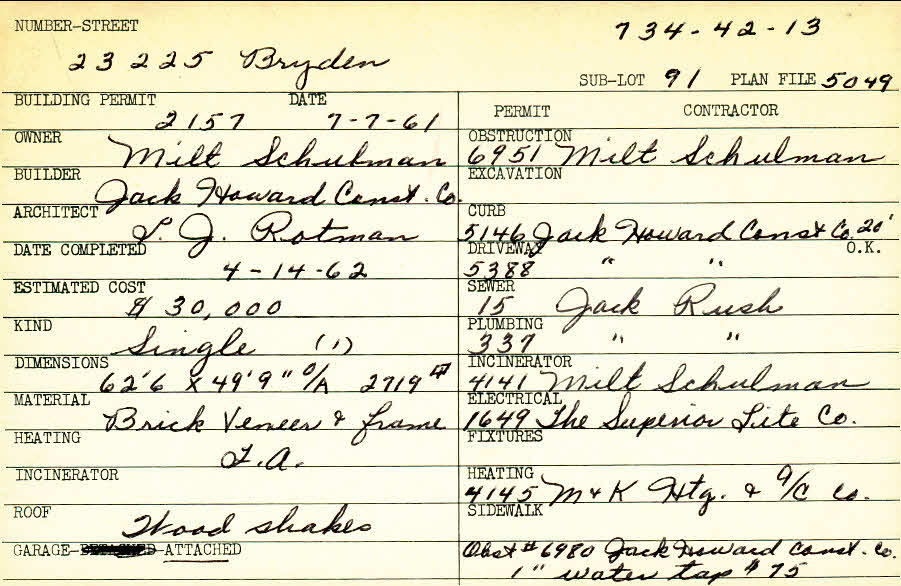 NUMBER-STREET
734-42-13
23225 Bryden
SUB-LOT 91 PLAN FILE 5049
BUILDING PERMIT DATE
2157 7-7-61
OWNER
Milt Schulman
BUILDER
Jack Howard Const. Co.
ARCHITECT
S. J. Rotman
DATE COMPLETED
4-14-62
ESTIMATED COST
$ 30,000
KIND
Single (1)
DIMENSIONS
62'6 x 49'9" O/A 2719
MATERIAL
Brick Veneer & frame
HEATING
F.A.
INCINERATOR
ROOF
Wood shakes
GARAGE-DETACHED-ATTACHED
PERMIT CONTRACTOR
OBSTRUCTION
6951 Milt Schulman
EXCAVATION
CURB
5146 Jack Howard Const Co. 20'
DRIVEWAY O.K.
5388 " "
SEWER
15 Jack Rush
PLUMBING
337 " "
INCINERATOR
4141 Milt Schulman
ELECTRICAL
1649 The Superior Lite Co.
FIXTURES
HEATING
4145 M & K Htg. & A/C Co.
SIDEWALK
Obst # 6980 Jack Howard Const. Co.
1" water tap $75